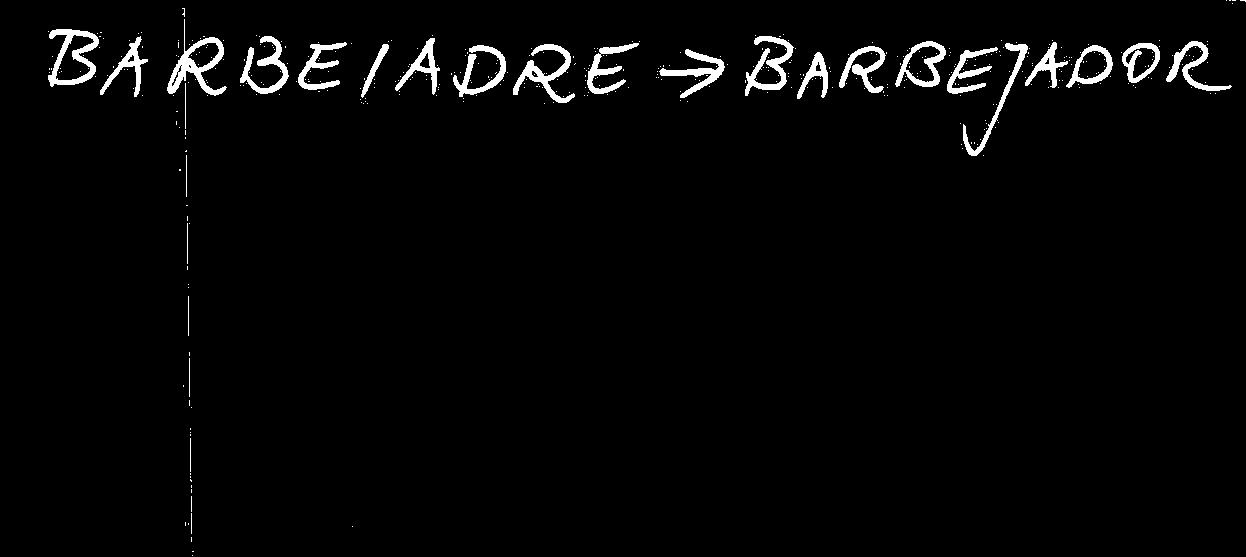 BARBEIADRE → BARBEJADOR